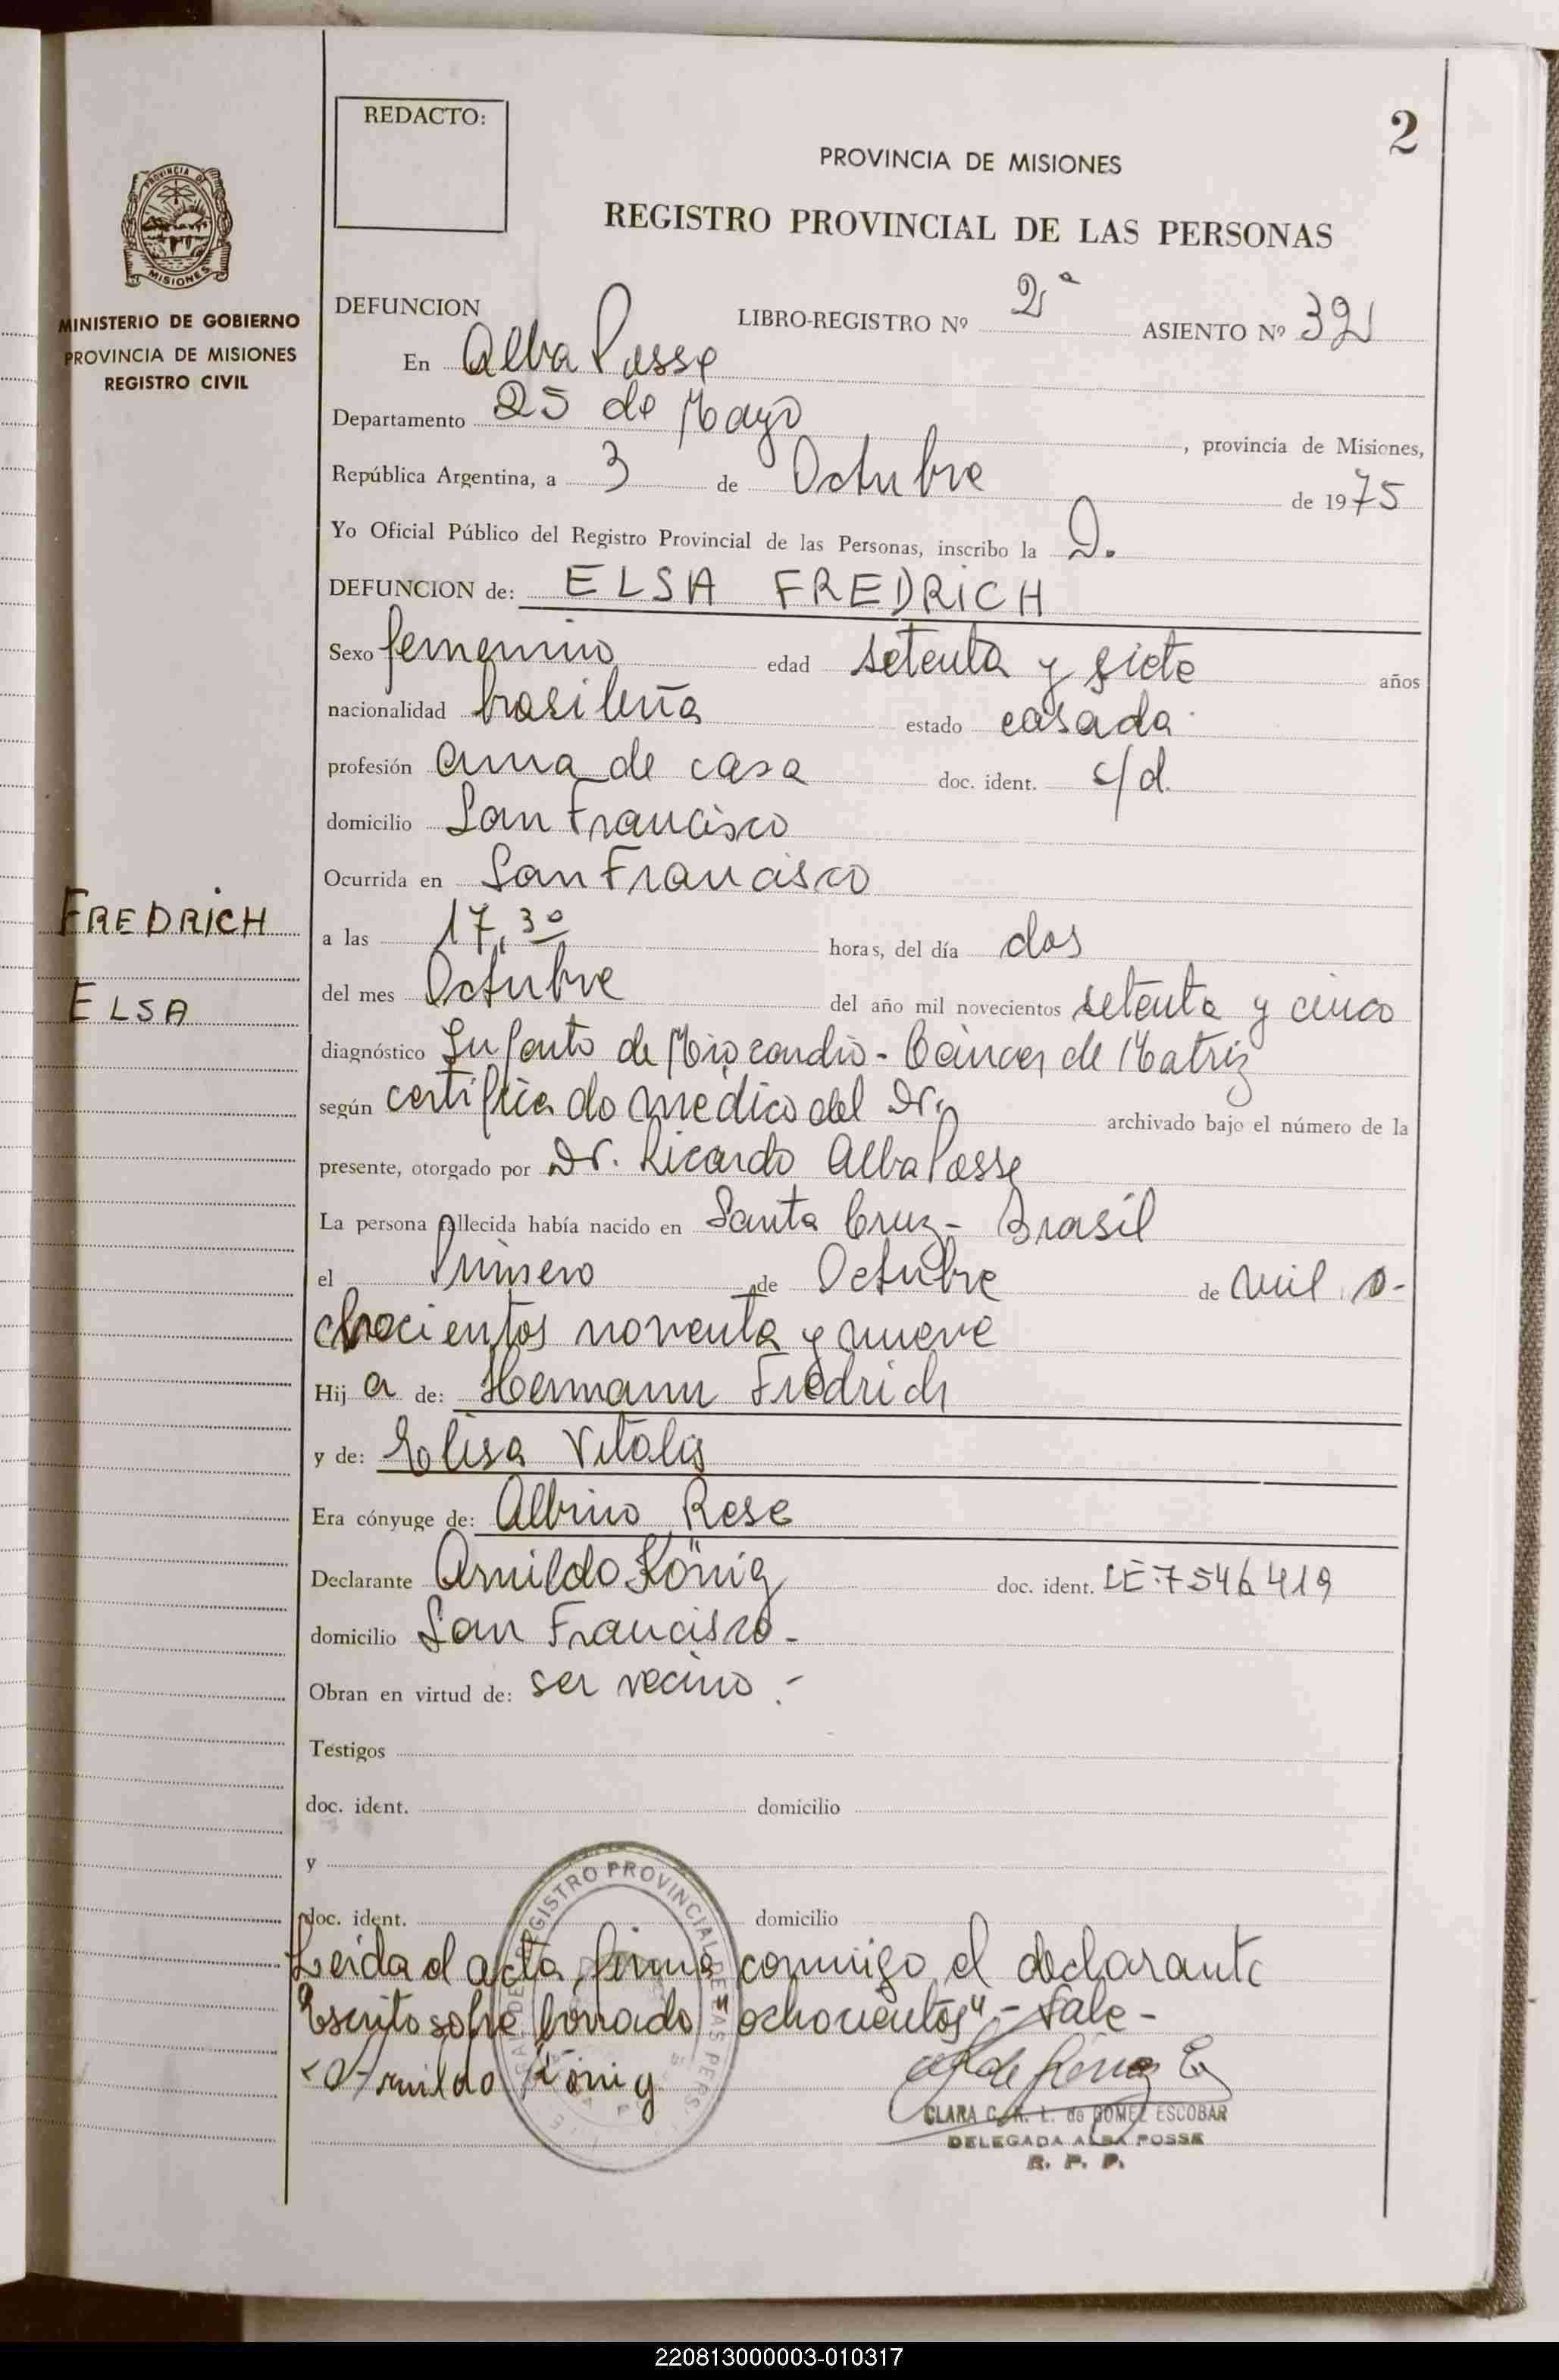 2
REDACTO:
PROVINCIA DE MISIONES
REGISTRO PROVINCIAL DE LAS PERSONAS
PROVINCIA DE
MISIONES
MINISTERIO DE GOBIERNO
PROVINCIA DE MISIONES
REGISTRO CIVIL
DEFUNCION LIBRO-REGISTRO Nº 2ª ASIENTO Nº 32
En Alba Posse
Departamento 25 de Mayo, provincia de Misiones,
República Argentina, a 3 de Octubre de 1975
Yo Oficial Público del Registro Provincial de las Personas, inscribo la D.
DEFUNCION de: ELSA FREDRICH
Sexo femenino edad setenta y siete años
nacionalidad brasileña estado casada
profesión ama de casa doc. ident. c/d.
domicilio San Francisco
Ocurrida en San Francisco
FREDRICH
ELSA
a las 17,30 horas, del día dos
del mes Octubre del año mil novecientos setenta y cinco
diagnóstico Infarto de Miocardio - Cáncer de Matriz
según certificado médico del Dr. archivado bajo el número de la
presente, otorgado por Dr. Ricardo Alba Posse
La persona fallecida había nacido en Santa Cruz - Brasil
el Primero de Octubre de mil o-
chocientos noventa y nueve
Hija de: Hermann Fredrich
y de: Elisa Vitalis
Era cónyuge de: Albino Rese
Declarante Arnildo König doc. ident. LE.7546419
domicilio San Francisco -
Obran en virtud de: ser vecino.-
Testigos
doc. ident. domicilio
y
doc. ident. domicilio
Leida el acta, firma conmigo el declarante
Escrito sobre borrado "ochocientos" - Vale -
Arnildo König
REGISTRO PROVINCIAL DE LAS PERS
CLARA C. R. L. de GOMEZ ESCOBAR
DELEGADA ALBA POSSE
R. P. P.
220813000003-010317